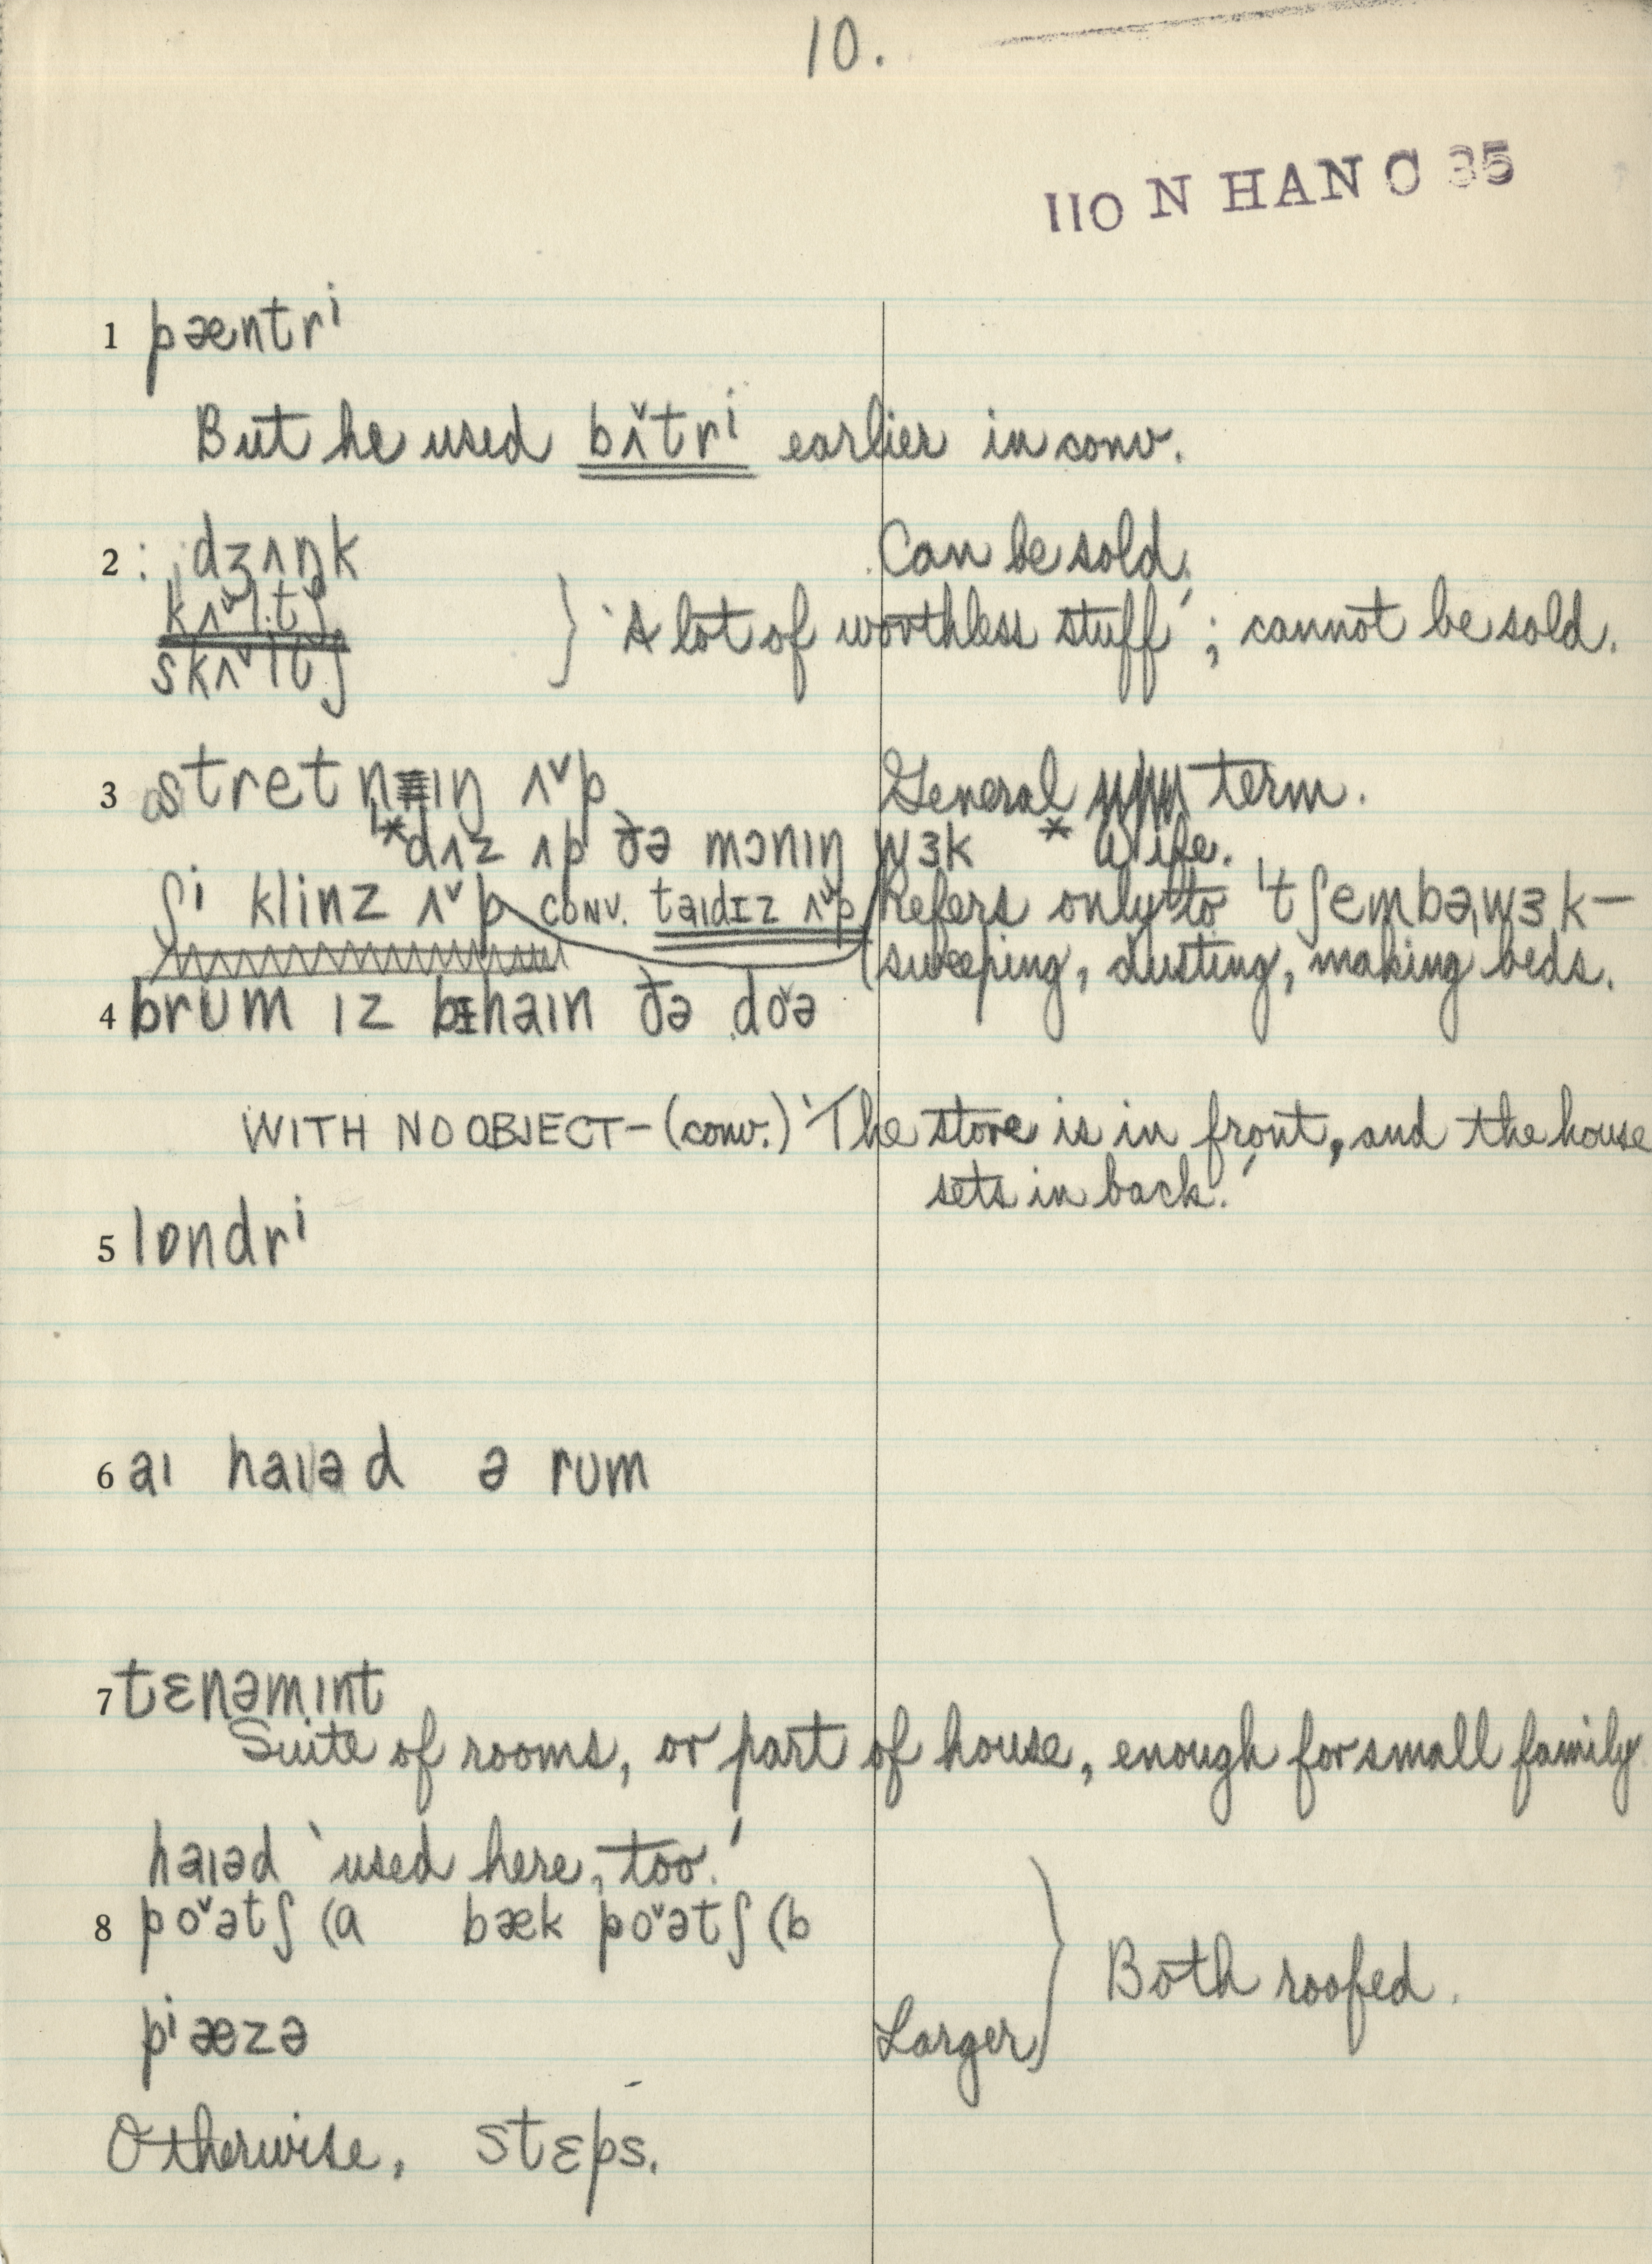 10.
110 N HAN C 35
1 pæntrⁱ
But he used bʌ̌trⁱ earlier in conv.
2 dʒʌŋk Can be sold.
kʌˇltʃ
skʌˇltʃ } 'A lot of worthless stuff'; cannot be sold.
3 stretnɪŋ ʌˇp General term.
*dʌz ʌp ðə mɔnɪŋ wɜk * Wife.
ʃi klinz ʌˇp CONV. taɪdɪz ʌˇp (Refers only to 'tʃembəˌwɜk—
sweeping, dusting, making beds.
4 brum ɪz bɪhaɪn ðə doˇə
WITH NO OBJECT—(conv.) 'The store is in front, and the house
sets in back.'
5 lɒndrⁱ
6 aɪ haɪəd ə rum
7 tɛnəmɪnt
Suite of rooms, or part of house, enough for small family.
haɪəd 'used here, too.'
8 poˇətʃ (a bæk poˇətʃ (b
} Both roofed.
pⁱæzə Larger
Otherwise, stɛps.